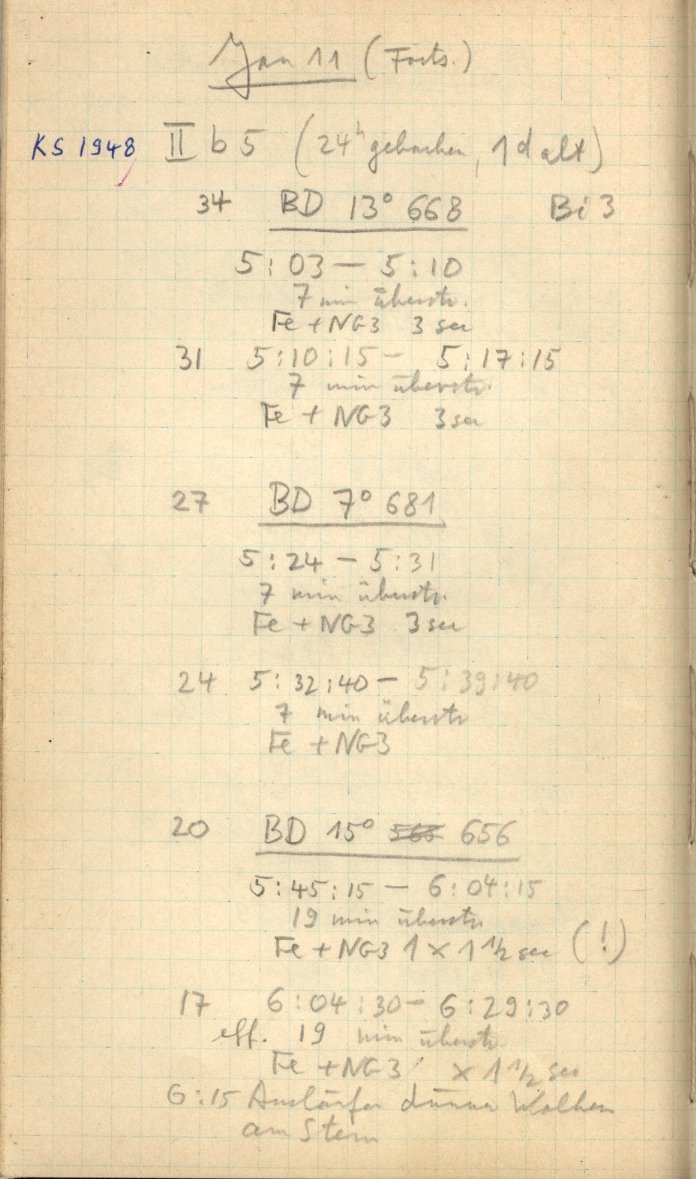 Jan 11 (Forts.)
KS 1948 II b 5 (24h gebacken, 1d alt)
34 BD 13° 668 Bi 3
5:03 – 5:10
7 min überstr.
Fe + NG3 3 sec
31 5:10:15 – 5:17:15
7 min überstr.
Fe + NG3 3 sec
27 BD 7° 681
5:24 – 5:31
7 min überstr.
Fe + NG3 3 sec
24 5:32:40 – 5:39:40
7 min überstr
Fe + NG3
20 BD 15° 656
5:45:15 – 6:04:15
19 min überstr.
Fe + NG3 1 × 1 1/2 sec (!)
17 6:04:30 – 6:29:30
eff. 19 min überstr.
Fe + NG3 × 1 1/2 sec
6:15 Ausläufer dünner Wolken
am Stern